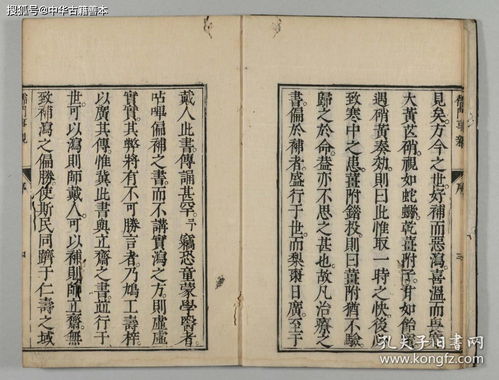 搜狐号@中华古籍善本
儒門事親 序
見矣方今之世好補而惡瀉喜溫而
大黃芒硝視如蛇蠍乾薑附子甘如飴
遇硝黃奏効則曰此惟取一時之快後必
致寒中之患薑附鍇投則曰薑附猶不驗
歸之於命蓋亦不思之甚也故凡治療之
書偏於補者盛行于世而梨棗日廣至于
戴人此書傳誦甚罕予竊恐童蒙學醫者
呫嗶偏補之書而不講實瀉之方則虛虛
實實其弊將有不可勝言者乃鳩工壽梓
以廣其傳惟冀此書與立齋之書並行于
世可以瀉則師戴人可以補則師立齋無
致補瀉之偏勝使斯民同躋于仁壽之域
儒門事親 序 四
孔夫子旧书网
www.kongfz.com